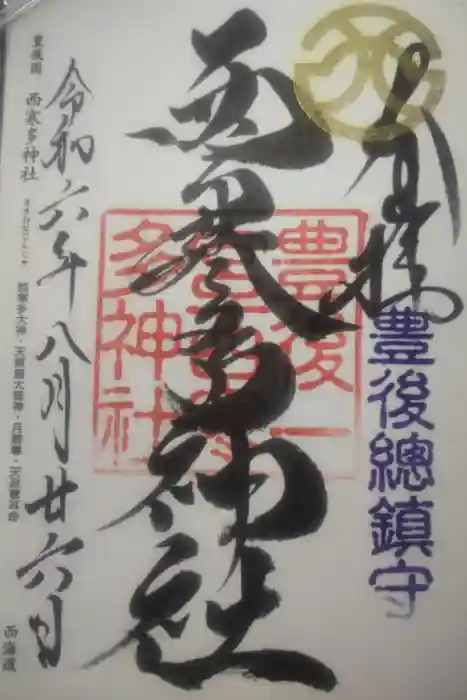 奉拝
豊後總鎮守
西寒多神社
豊後一
宮西寒
多神社
令和六年八月廿六日
豊後国
西寒多神社
西寒多大神・天照皇大御神・月読尊・天忍穂耳命
西海道